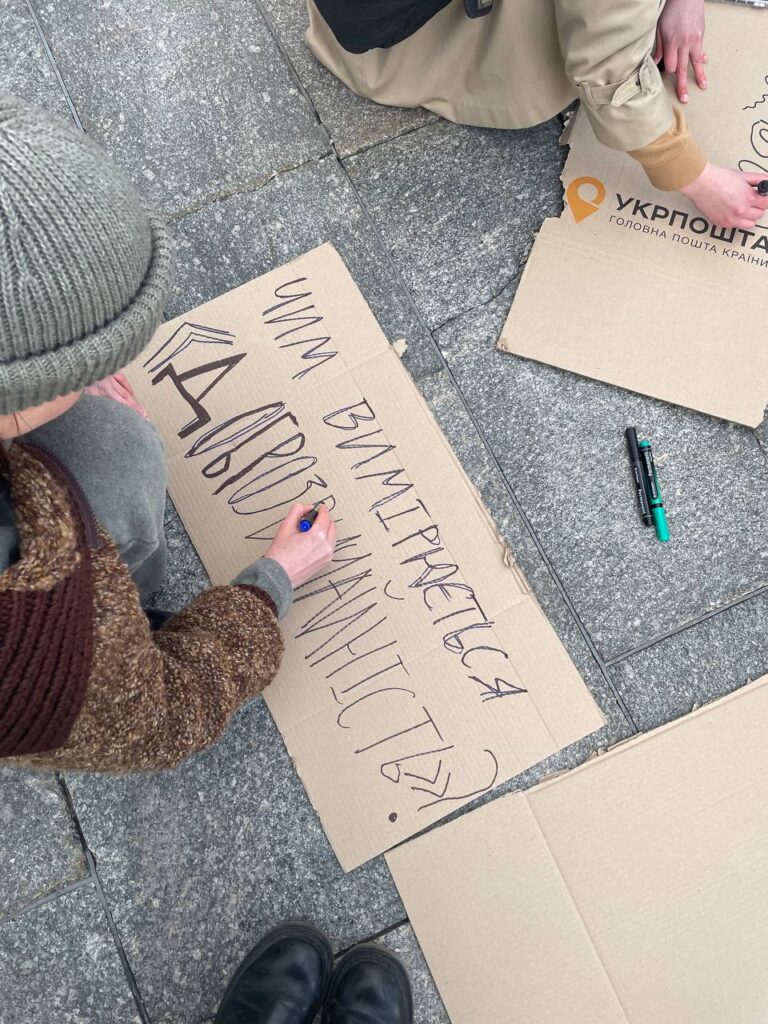 ЧИМ
ВИМІРЮЄТЬСЯ
«ДОБРОЗВИЧАЙНІСТЬ»?
УКРПОШТА
ГОЛОВНА ПОШТА КРАЇНИ